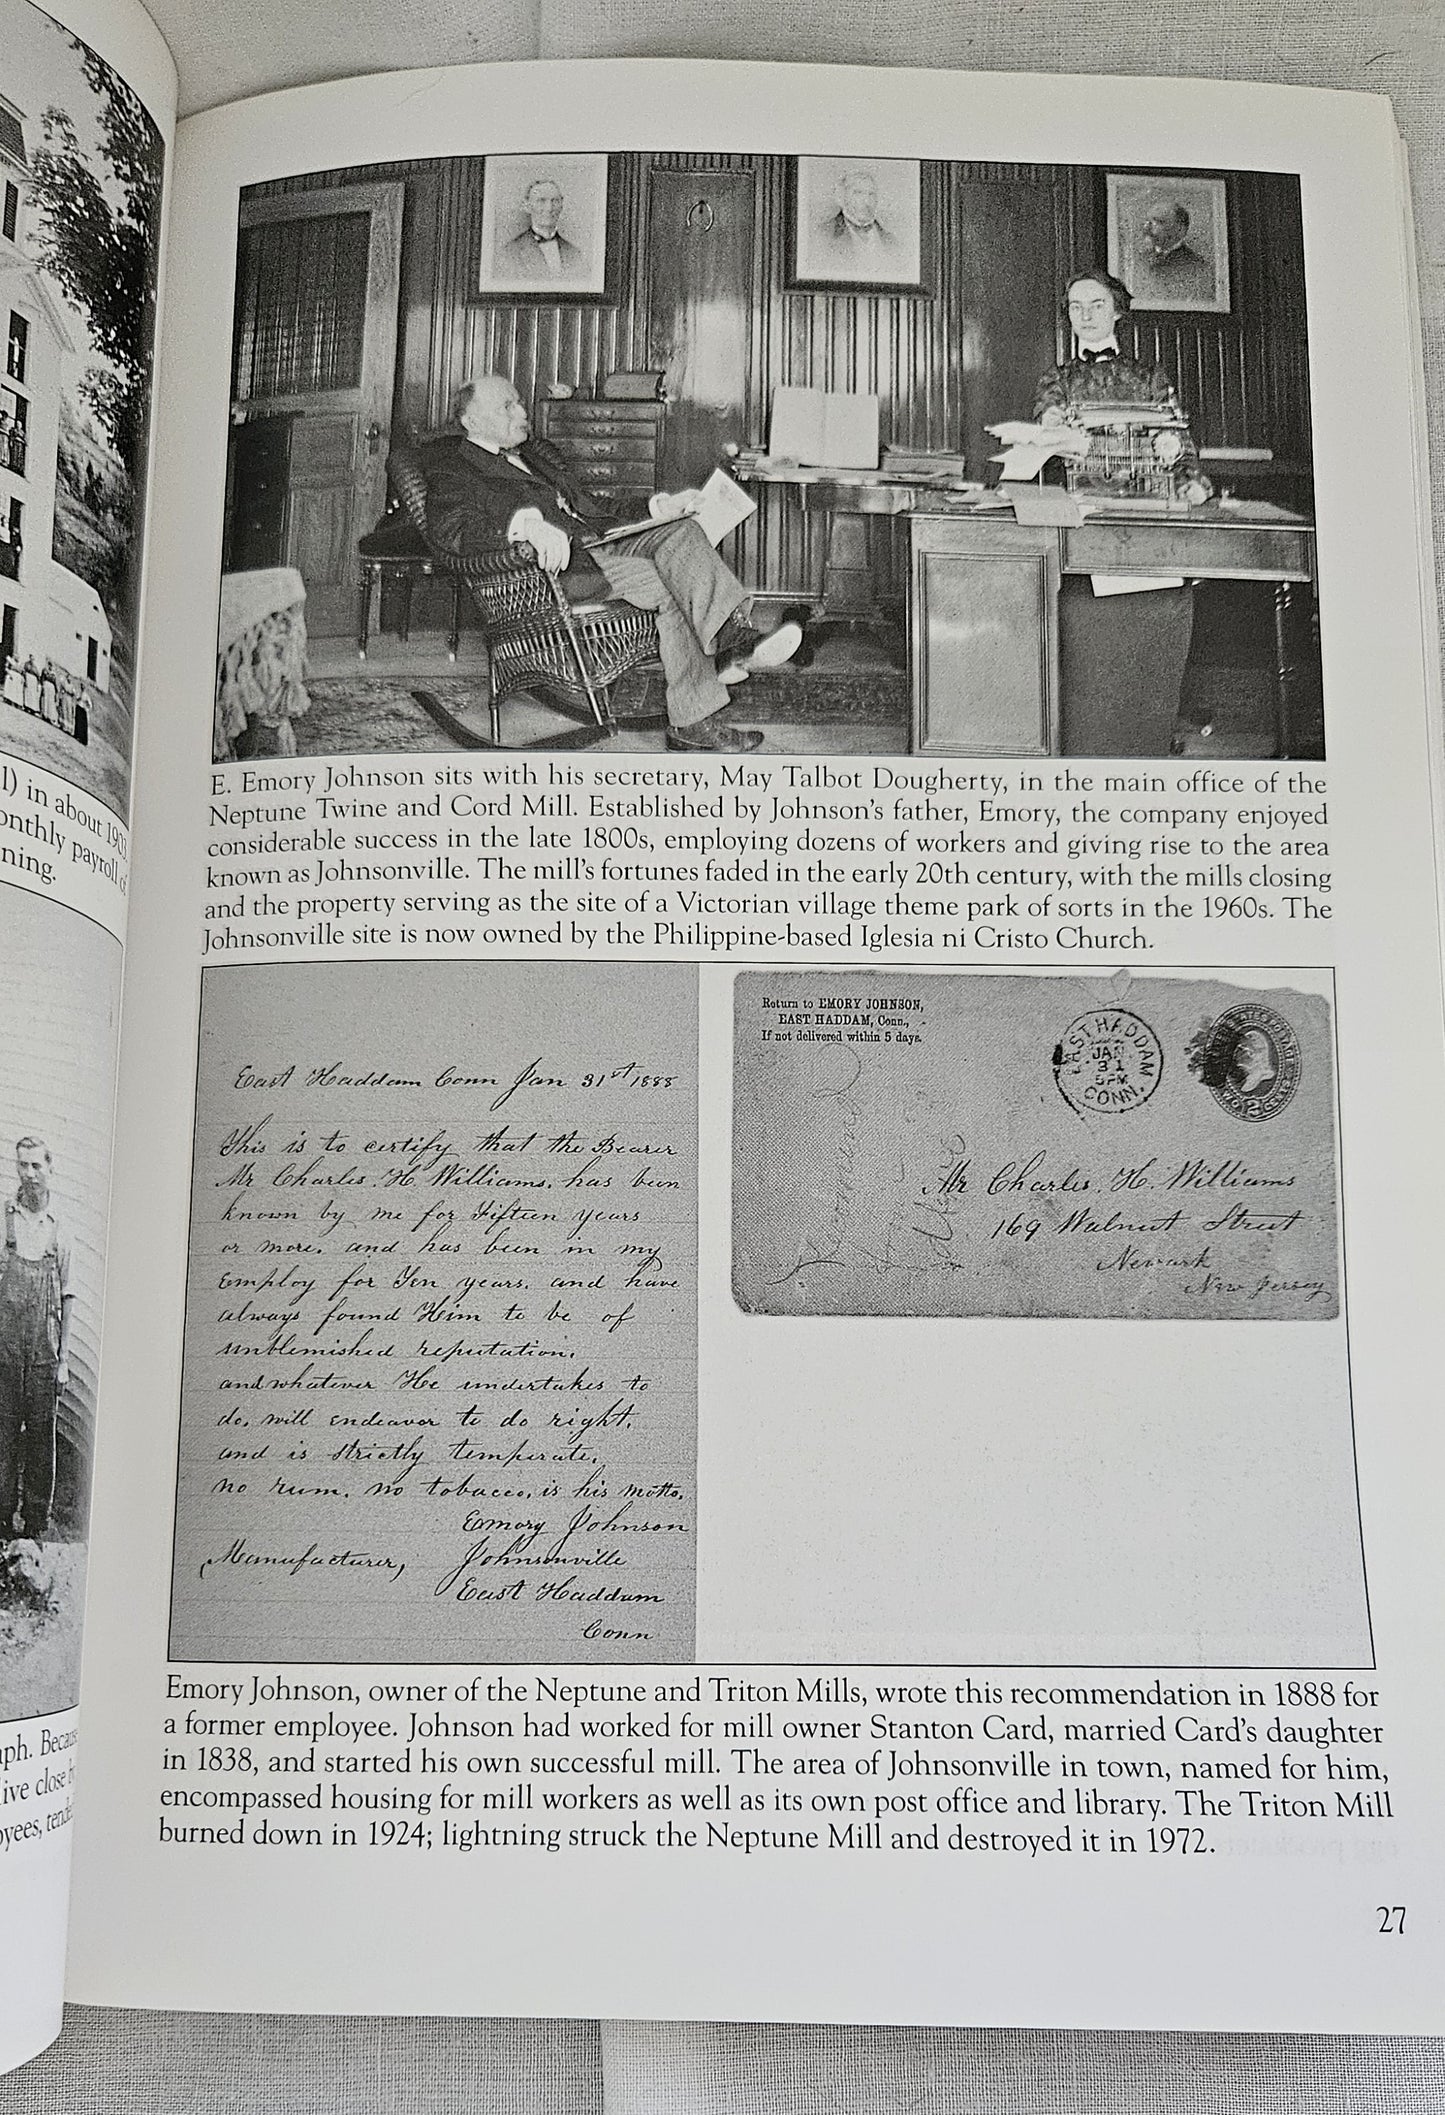 l) in about 1903.
onthly payroll of
ning.
ph. Because
ive close
yees,
E. Emory Johnson sits with his secretary, May Talbot Dougherty, in the main office of the
Neptune Twine and Cord Mill. Established by Johnson's father, Emory, the company enjoyed
considerable success in the late 1800s, employing dozens of workers and giving rise to the area
known as Johnsonville. The mill's fortunes faded in the early 20th century, with the mills closing
and the property serving as the site of a Victorian village theme park of sorts in the 1960s. The
Johnsonville site is now owned by the Philippine-based Iglesia ni Cristo Church.
East Haddam Conn Jan 31st 1888
This is to certify that the Bearer
Mr Charles. H. Williams. has been
known by me for Fifteen years
or more. and has been in my
Employ for Ten years. and have
always found Him to be of
unblemished reputation.
and whatever He undertakes to
do. will endeavor to do right.
and is strictly temperate.
no rum. no tobacco. is his motto.
Emory Johnson
Manufacturer, Johnsonville
East Haddam
Conn
Return to EMORY JOHNSON,
EAST HADDAM, Conn.,
If not delivered within 5 days.
EAST HADDAM
JAN
31
5PM
CONN.
Mr Charles. H. Williams
169 Walnut Street
Newark
New Jersey
Emory Johnson, owner of the Neptune and Triton Mills, wrote this recommendation in 1888 for
a former employee. Johnson had worked for mill owner Stanton Card, married Card's daughter
in 1838, and started his own successful mill. The area of Johnsonville in town, named for him,
encompassed housing for mill workers as well as its own post office and library. The Triton Mill
burned down in 1924; lightning struck the Neptune Mill and destroyed it in 1972.
27